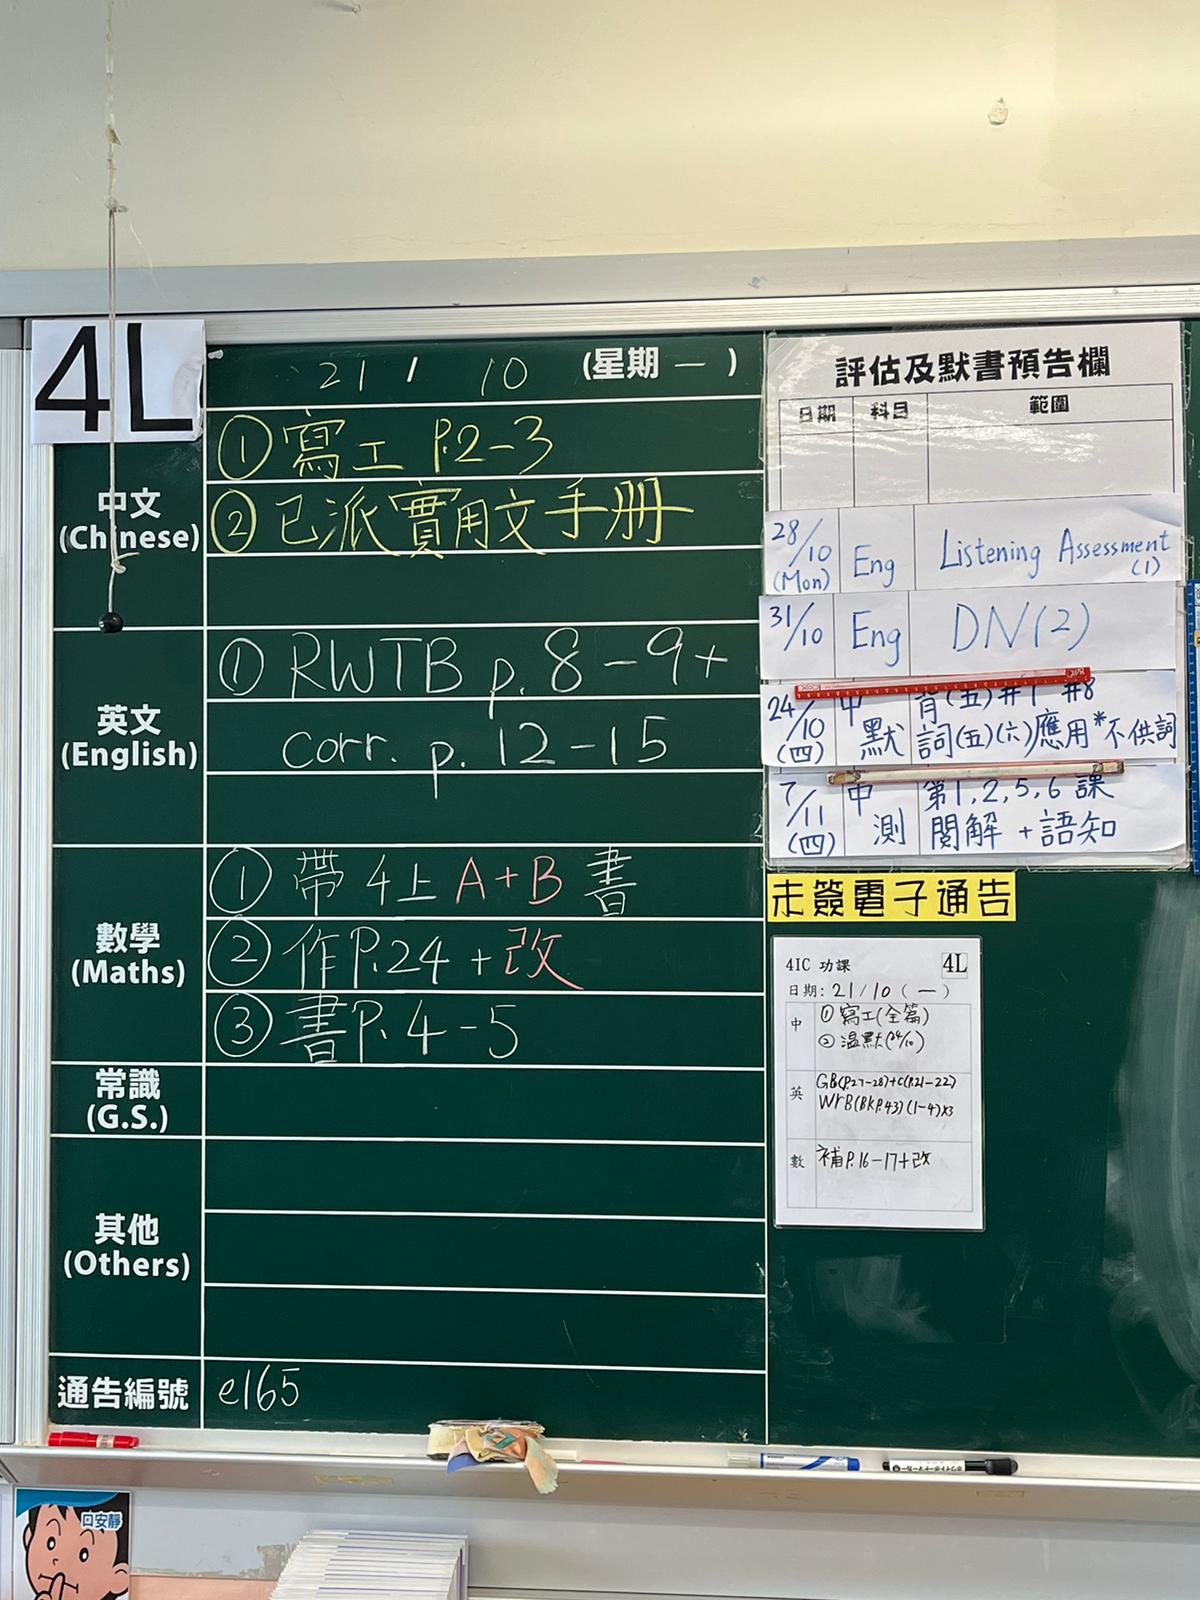 4L
21 / 10 (星期一)
中文
(Chinese)
① 寫工 P.2-3
② 已派實用文手册
英文
(English)
① RWTB p. 8-9+
corr. p. 12-15
數學
(Maths)
① 帶4上A+B書
② 作P.24+改
③ 書P.4-5
常識
(G.S.)
其他
(Others)
通告編號
e165
評估及默書預告欄
日期 科目 範圍
28/10 (Mon) Eng Listening Assessment (1)
31/10 Eng DN(2)
24/10 (四) 中默 背(五)#1 #8
詞(五)(六)應用*不供詞
7/11 (四) 中測 第1,2,5,6課
閱解+語知
未簽電子通告
4IC 功課 4L
日期: 21/10 (一)
中 ① 寫工(全篇)
② 温默(24/10)
英 GB(P.27-28)+C(P.21-22)
WrB(BKP.43)(1-4)x3
數 補P.16-17+改
口安靜